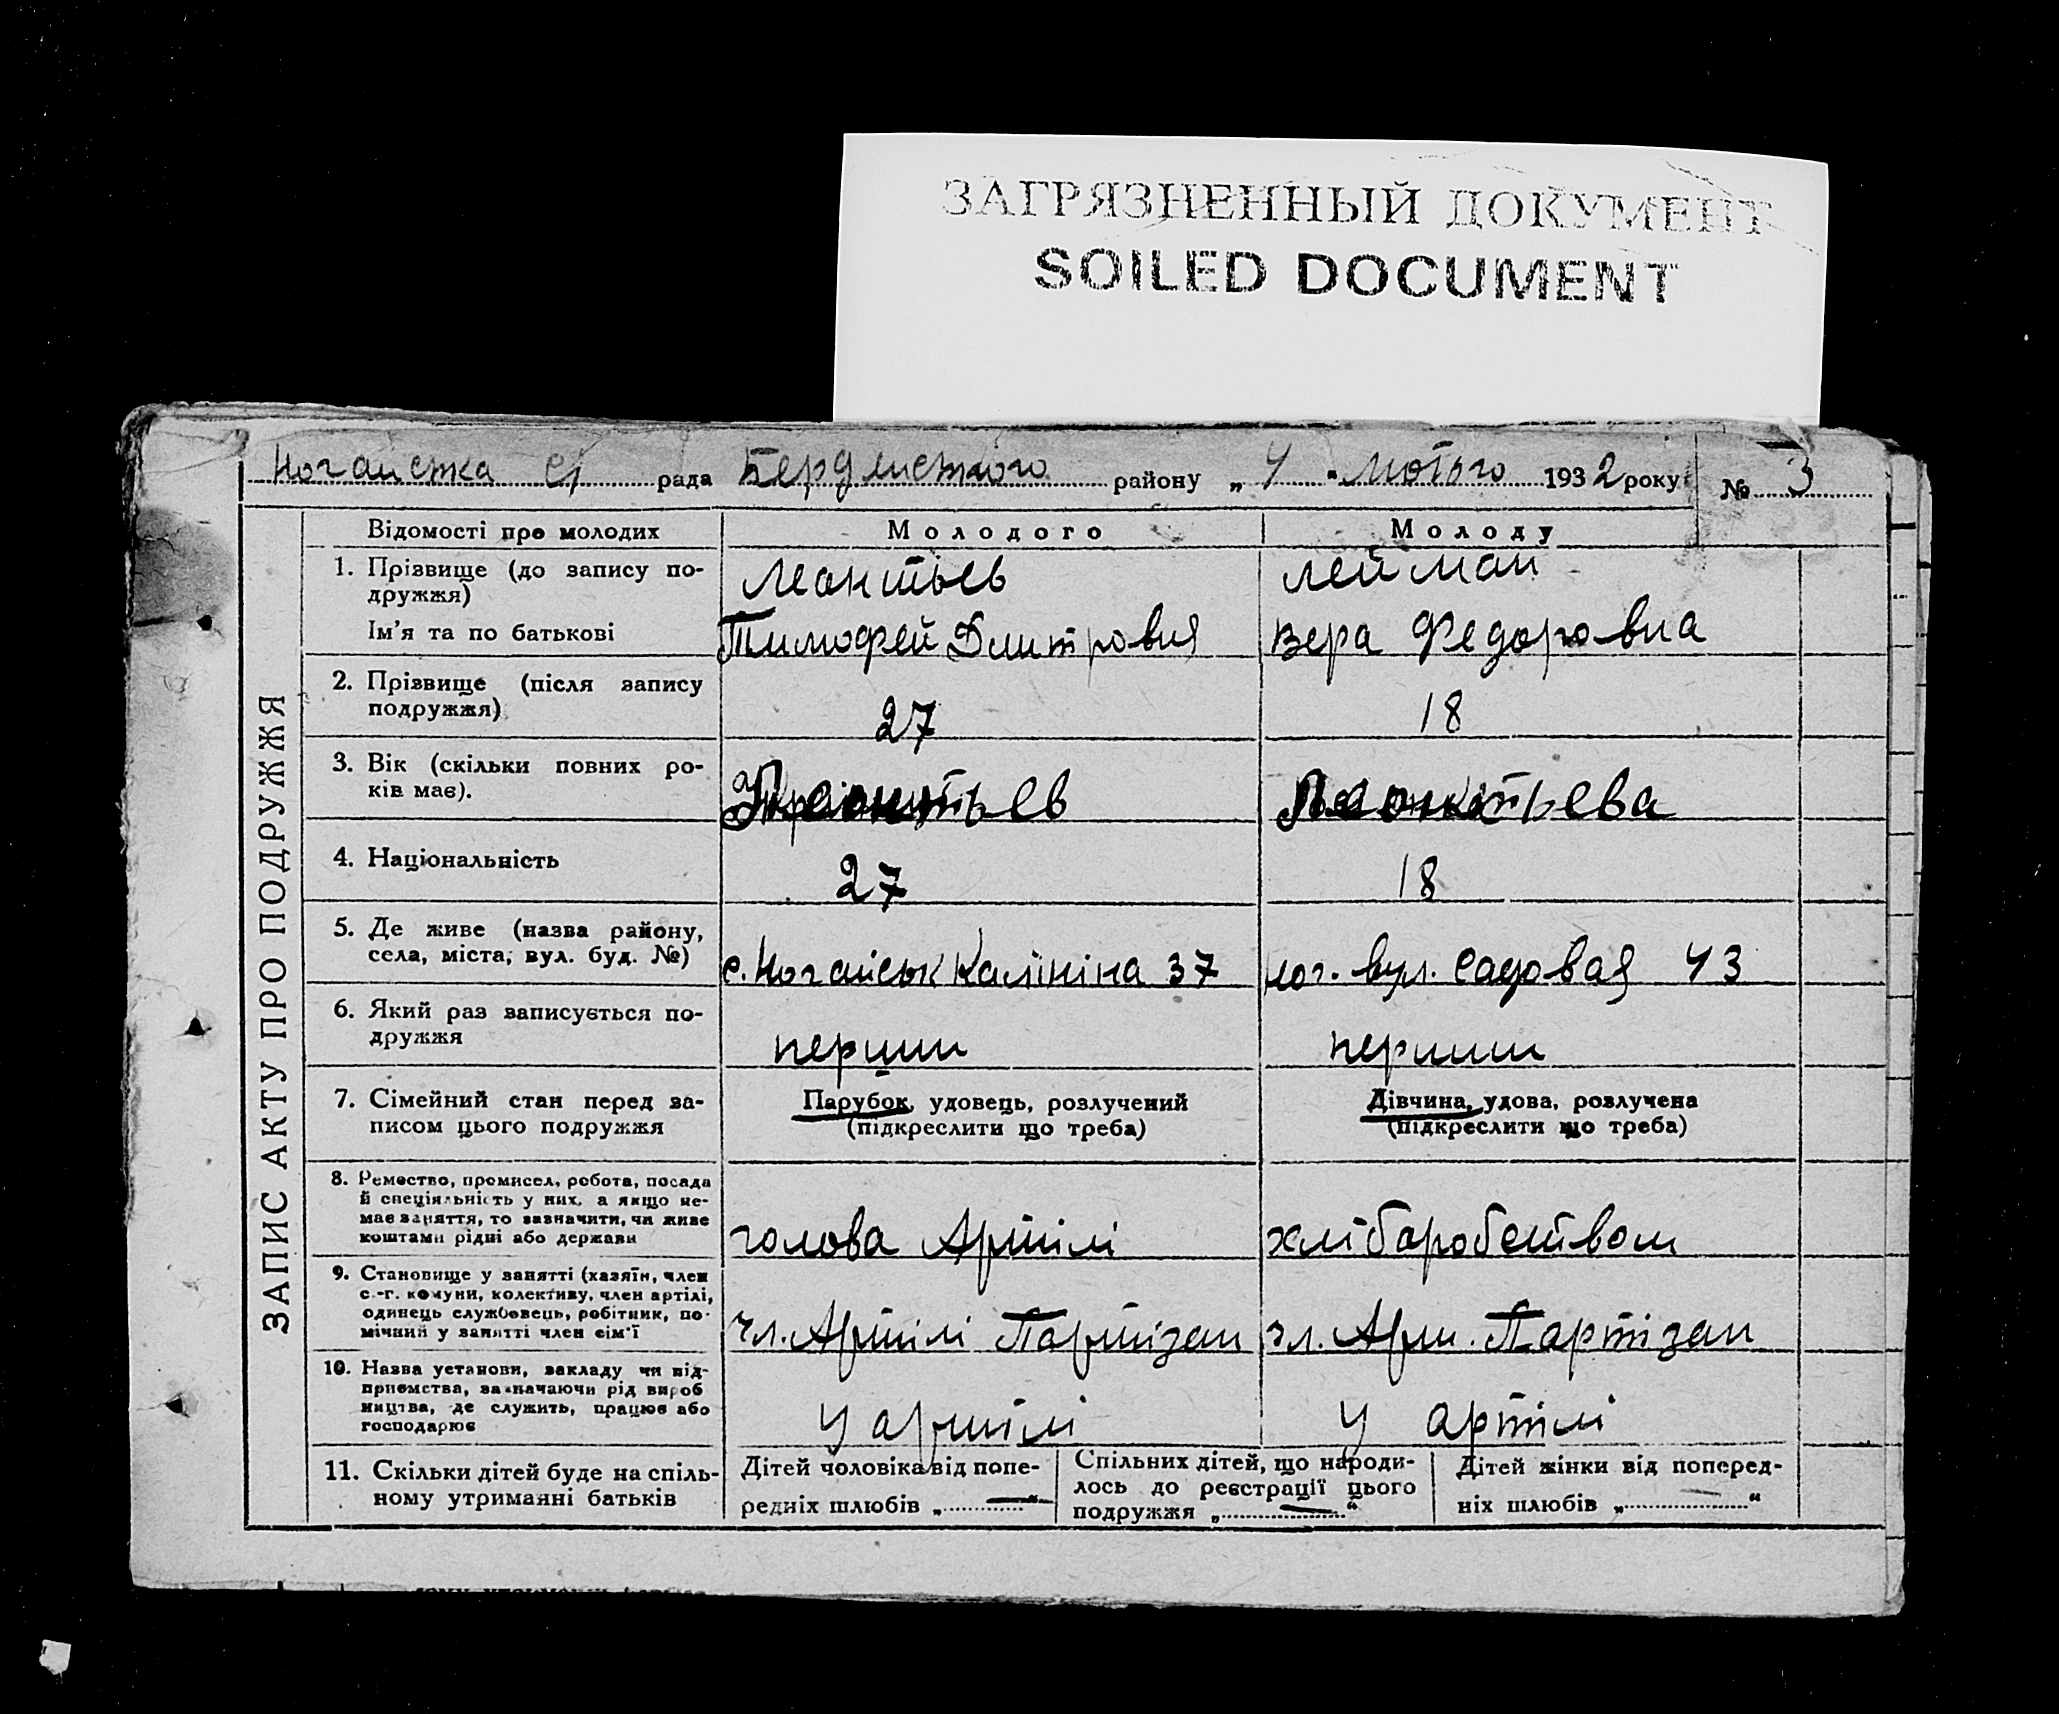 ЗАГРЯЗНЕННЫЙ ДОКУМЕНТ
SOILED DOCUMENT
Ногайська с/ рада Бердянського району „ 4 " лютого 1932 року № 3
ЗАПИС АКТУ ПРО ПОДРУЖЖЯ
Відомості про молодих Молодого Молоду
1. Прізвище (до запису по-
дружжя) Леонтьев Лейман
Ім'я та по батькові Тимофей Дмитровия Вера Федоровна
2. Прізвище (після запису
подружжя) 27 18
3. Вік (скільки повних ро-
ків має). Леонтьев Леонтьева
4. Національність 27 18
5. Де живе (назва району,
села, міста, вул. буд. №) с. Ногайськ Калініна 37 ног. вул. Садовая 43
6. Який раз записується по-
дружжя перший перший
7. Сімейний стан перед за-
писом цього подружжя
Парубок, удовець, розлучений
(підкреслити що треба)
Дівчина, удова, розлучена
(підкреслити що треба)
8. Ремество, промисел, робота, посада
й спеціяльність у них, а якщо не-
має заняття, то зазначити, чи живе
коштами рідні або держави
голова Артілі хліборобством
9. Становище у занятті (хазяїн, член
с.-г. комуни, колективу, член артілі,
одинець службовець, робітник, по-
мічний у занятті член сім'ї
чл. Артілі Партізан чл. Арт. Партізан
10. Назва установи, закладу чи під-
приємства, зазначаючи рід вироб
ництва, де служить, працює або
господарює
у артілі у артілі
11. Скільки дітей буде на спіль-
ному утриманні батьків
Дітей чоловіка від попе-
редніх шлюбів „ — "
Спільних дітей, що народи-
лось до реєстрації цього
подружжя „ — "
Дітей жінки від поперед-
ніх шлюбів „ — "